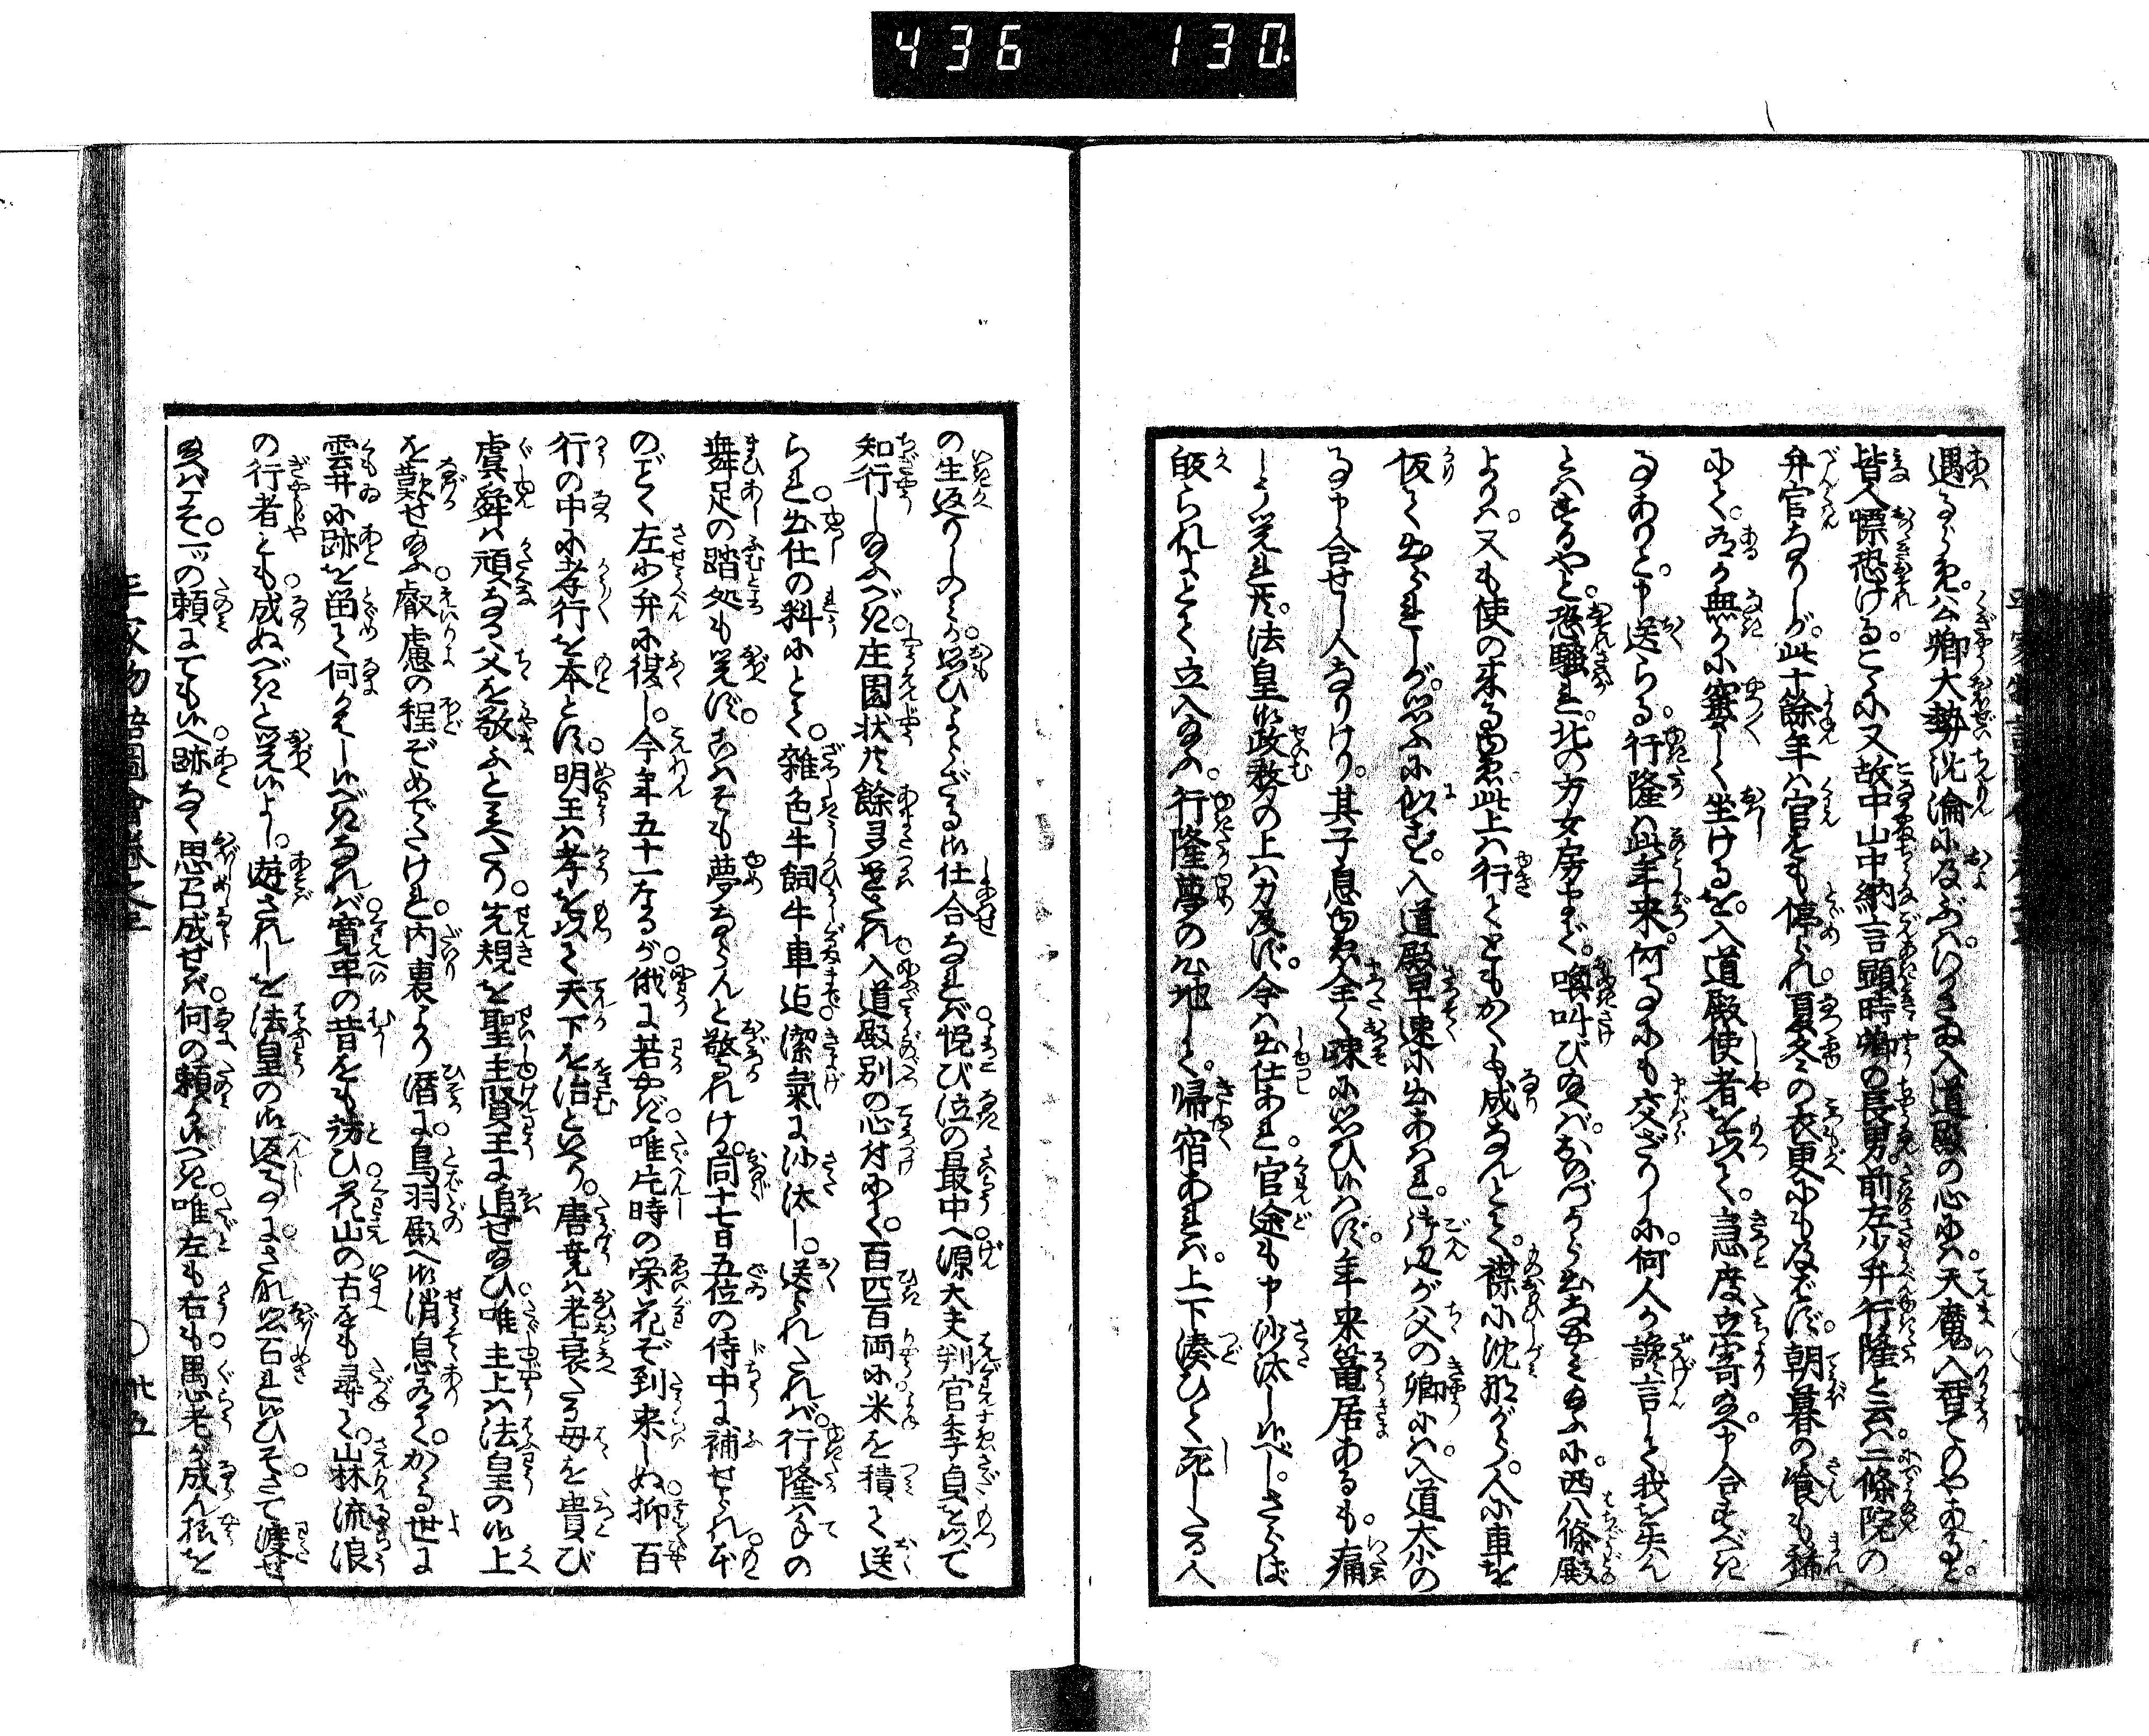 436 130.
遇るらめ。公卿大勢沈淪に及ぶハ。いかさま入道殿の心にハ。天魔入替てのやあると。
皆人慓恐ける。こゝに又故中山中納言顕時卿の長男前左少弁行隆と云ハ二條院の
弁官なりしが。此十餘年ハ官をも停られ。夏冬の衣更にも及ばず。朝暮の飡も稀
にて。有か無かに窶しく坐けるを。入道殿使者を以て。急度立寄給へ申合すべき
事ありと。申送らる。行隆ハ此年来。何事にも交ざりしに。何人か讒言して我を失ん
とハするやと。恐騒バ。北の方女房まで。喚叫び給へバ。おのづから出給ハざりけるに。西八條殿
より又も使の来る故此上ハ行てともかくも成なんとて。襟に沈ながら。人に車を
仮て出られしが。思ふに似ず。入道殿早速に出あハれ。御辺が父の卿にハ。入道大小の
事申合せし人なりけり。其子息ゆゑ全く疎に思ひ候ハず。年来篭居あるも。痛
しう覚しれ共。法皇御政務の上ハ力及ばず。今ハ出仕あれ。官途も申沙汰し候べし。さらば
皈られよとて立入給ふ。行隆夢の心地して。帰宿あれバ。上下湊ひて死したる人
の生返りしのミか。思ひよらざる御仕合なれバ。悦び泣の最中へ源大夫判官季貞を以て
知行し給ふべき庄園状共餘多遣され。入道殿別の心付にて。百匹百両に米を積て送
られ。出仕の料にとて。雑色牛飼牛車迠潔氣に沙汰し。送られたれバ。行隆ハ手の
舞足の踏処も覚ず。こハそも夢ならんと驚れける。同十七日五位の侍中に補せられ本
のごく左少弁に復し。今年五十一なるが。俄に若やぎ。唯片時の栄花ぞ到来しぬ。抑百
行の中に孝行を本とす。明王ハ孝を以て天下を治と云り。唐尭ハ老衰たる母を貴び
虞舜ハ頑なる父を敬ふと見へたり。先規を聖主賢王に追せ給ひ。唯主上ハ法皇の御上
を歎せ給ふ。叡慮の程ぞめでたけれ。内裏より潜に。鳥羽殿へ御消息有て。かゝる世に
雲井に跡を留て何かハし候べきなれバ寛平の昔をも訪ひ。花山の古をも尋て。山林流浪
の行者とも。成ぬべきと覚候よし。遊されしを法皇の御返事に。されバ思召れ候ひそ。さて渡せ
給へバこそ。一ツの頼にても候へ。跡なく思召成せバ。何の頼か候べき。唯左も右も。愚老が成ん様を
平家物語圖會巻之
廿五